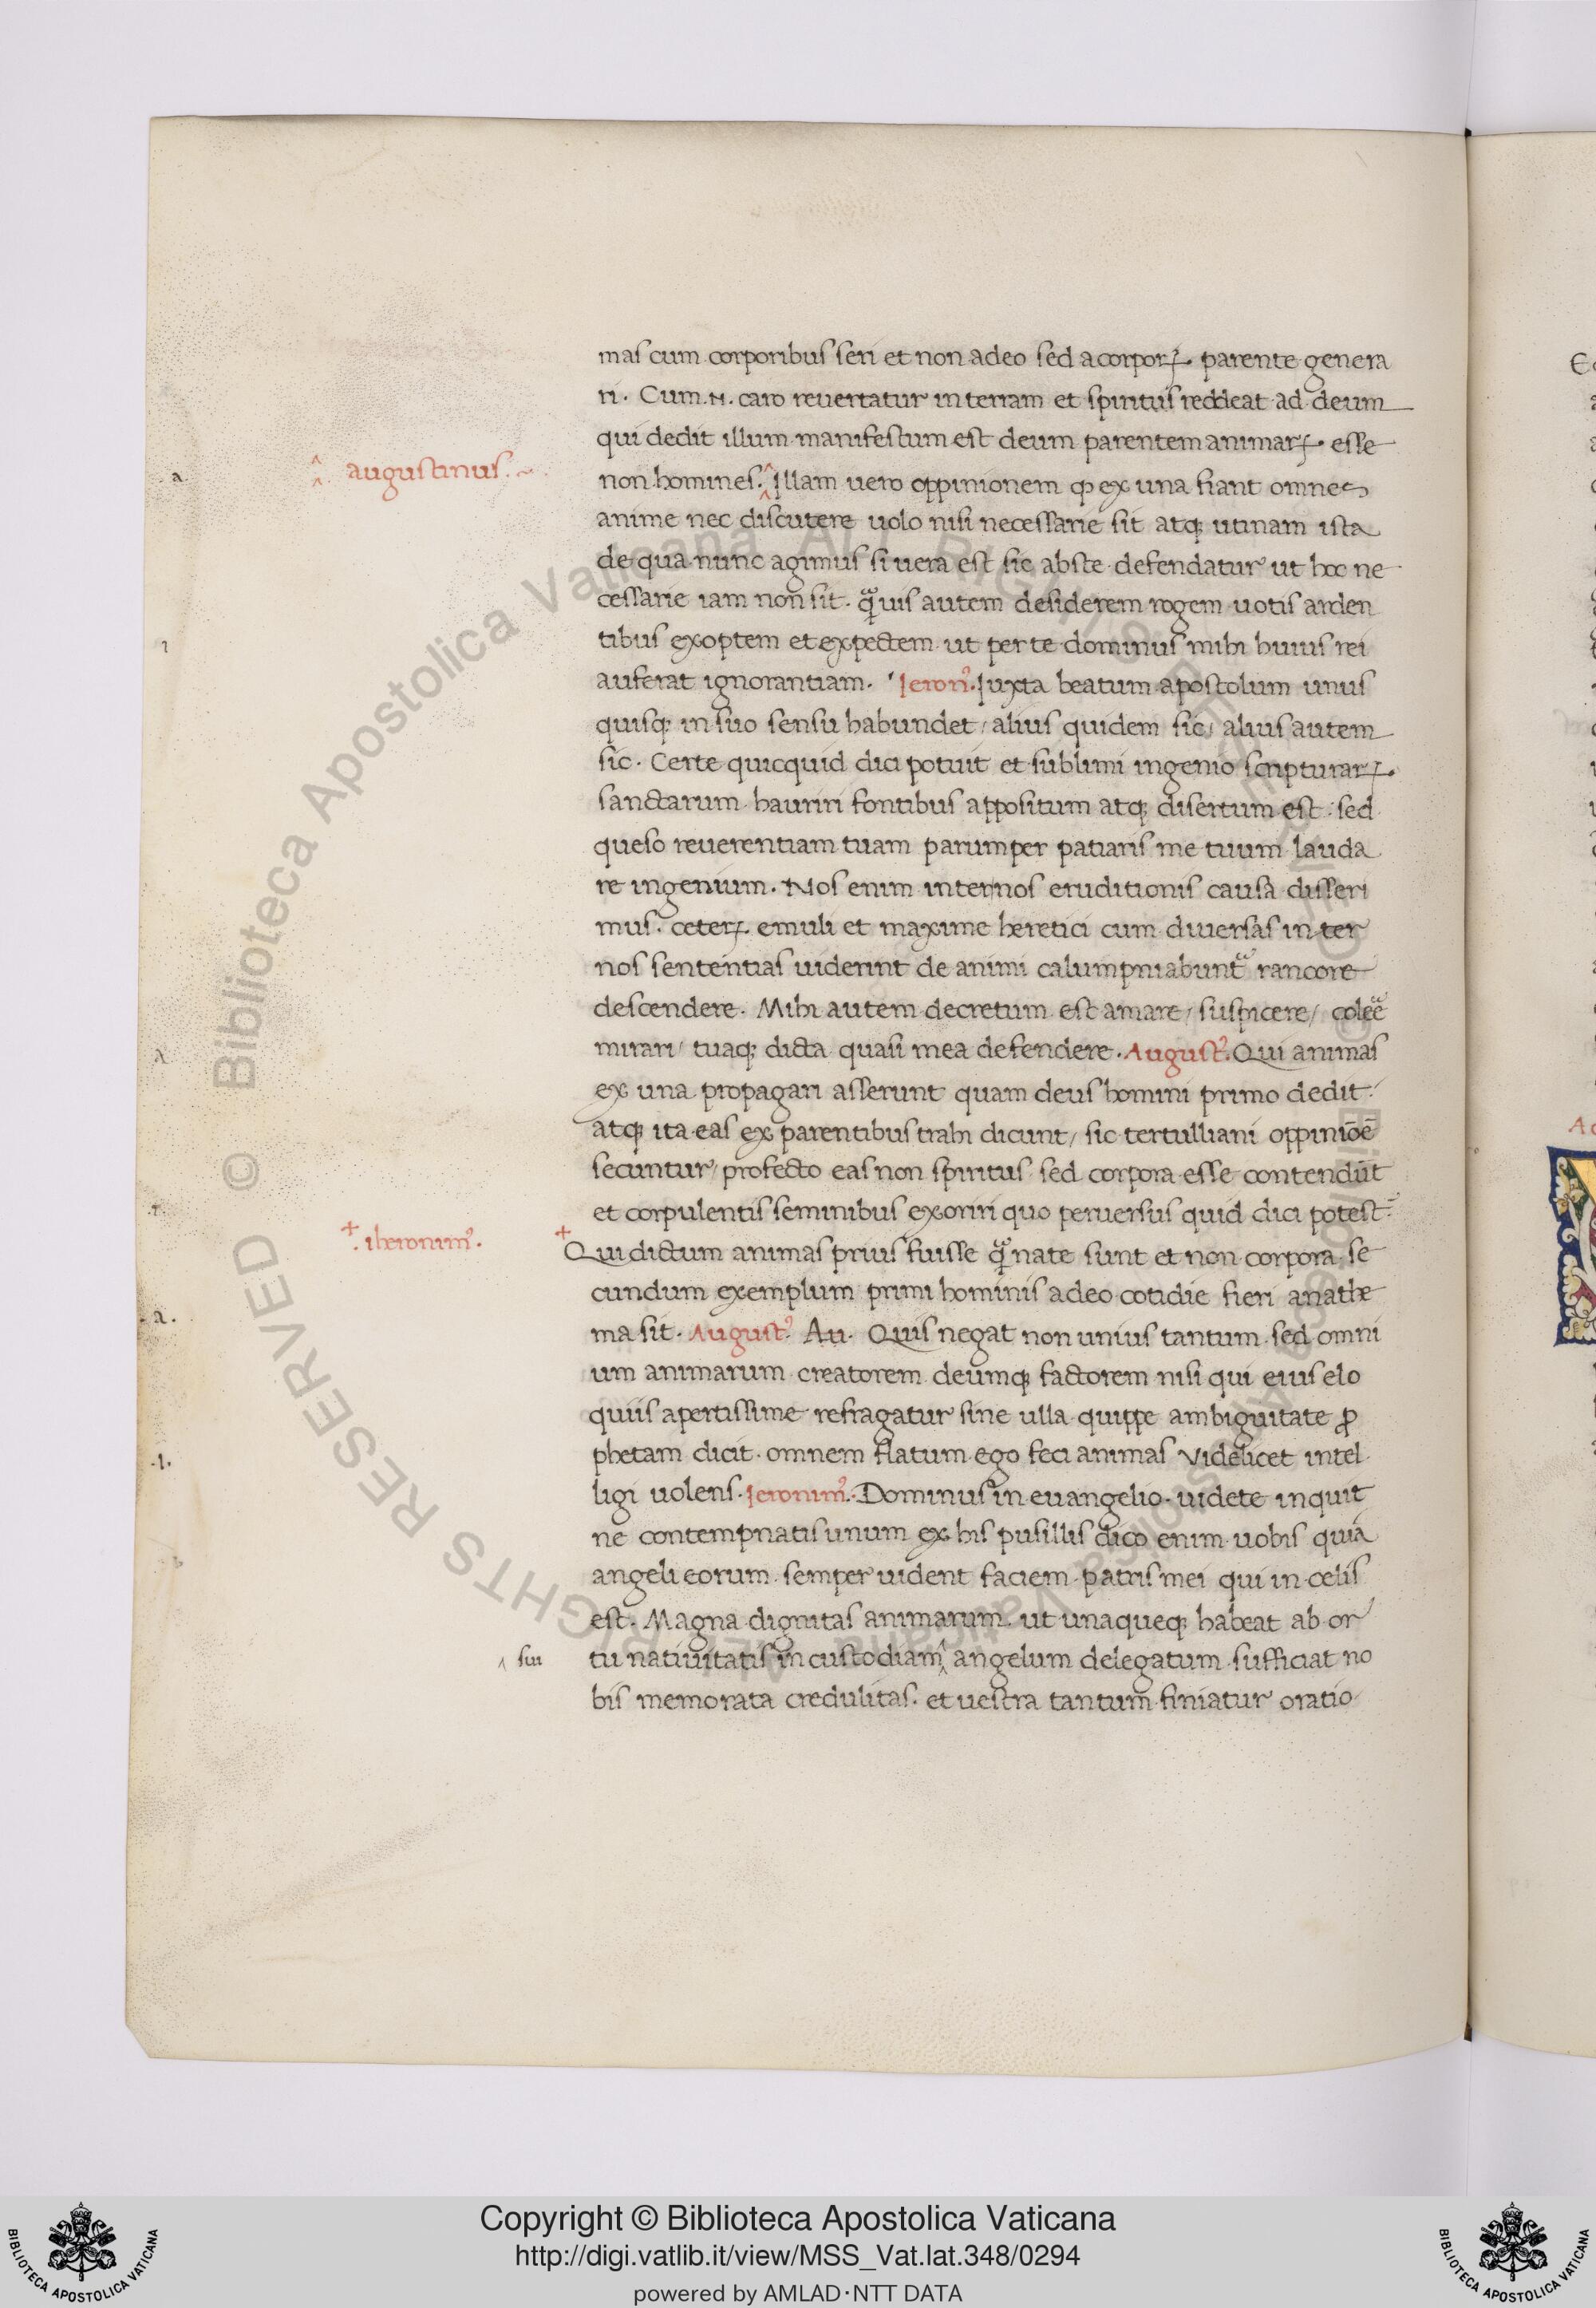 mas cum corporibus seri et non adeo sed a corporꝝ parente genera
ri. Cum .N. caro reuertatur in terram et spiritus reddeat ad deum
qui dedit illum manifestum est deum parentem animarꝝ esse
a. augustinus.
non homines. Illam uero oppinionem ꝙ ex una fiant omnes
anime nec discutere uolo nisi necessarie sit atqꝫ utinam ista
de qua nunc agimus si uera est sic abste defendatur ut hoc ne
cessarie iam non sit. qᵃ̈uis autem desiderem rogem uotis arden
tibus exoptem et expectem ut per te dominus mihi huius rei
auferat ignorantiam. Ieron⁹. Iuxta beatum apostolum unus
quisqꝫ in suo sensu habundet / alius quidem sic / alius autem
sic. Certe quicquid dici potuit et sublimi ingenio scripturarꝝ.
sanctarum hauriri fontibus appositum atqꝫ disertum est: sed
queso reuerentiam tuam parumper patiaris me tuum lauda
re ingenium. Nos enim inter nos eruditionis causa disseri
mus. ceterꝝ emuli et maxime heretici cum diuersas inter
nos sententias uiderint de animi calumpniabuntᵃ̈ rancore
descendere. Mihi autem decretum est amare / suspicere / coleᵃ̈e
mirari / tuaqꝫ dicta quasi mea defendere. August⁹. Qui animas
ex una propagari asserunt quam deus homini primo dedit
atqꝫ ita eas ex parentibus trahi dicunt / sic tertulliani oppiniōē
secuntur / profecto eas non spiritus sed corpora esse contendūt
et corpulentis seminibus exoriri quo peruersus quid dici potest.
iheronim⁹.
Qui dictum animas prius fuisse qᵃ̈ nate sunt et non corpora se
cundum exemplum primi hominis adeo cotidie fieri anathe
a.
ma sit. August⁹. Au. Quis negat non unius tantum sed omni
um animarum creatorem deumqꝫ factorem nisi qui eius elo
quiis apertissime refragatur sine ulla quippe ambiguitate ꝓ
phetam dicit. omnem flatum ego feci animas videlicet intel
.I.
ligi uolens. Ieronim⁹. Dominus in euangelio. uidete inquit
ne contempnatis unum ex his pusillis dico enim uobis quia
angeli eorum semper uident faciem patris mei qui in celis
est. Magna dignitas animarum ut unaqueqꝫ habeat ab or
sui
tu natiuitatis in custodiam angelum delegatum sufficiat no
bis memorata credulitas. et uestra tantum finiatur oratio
Copyright © Biblioteca Apostolica Vaticana
http://digi.vatlib.it/view/MSS_Vat.lat.348/0294
powered by AMLAD·NTT DATA
BIBLIOTECA APOSTOLICA VATICANA
BIBLIOTECA APOSTOLICA VATICANA
© Biblioteca Apostolica Vaticana ALL RIGHTS RESERVED